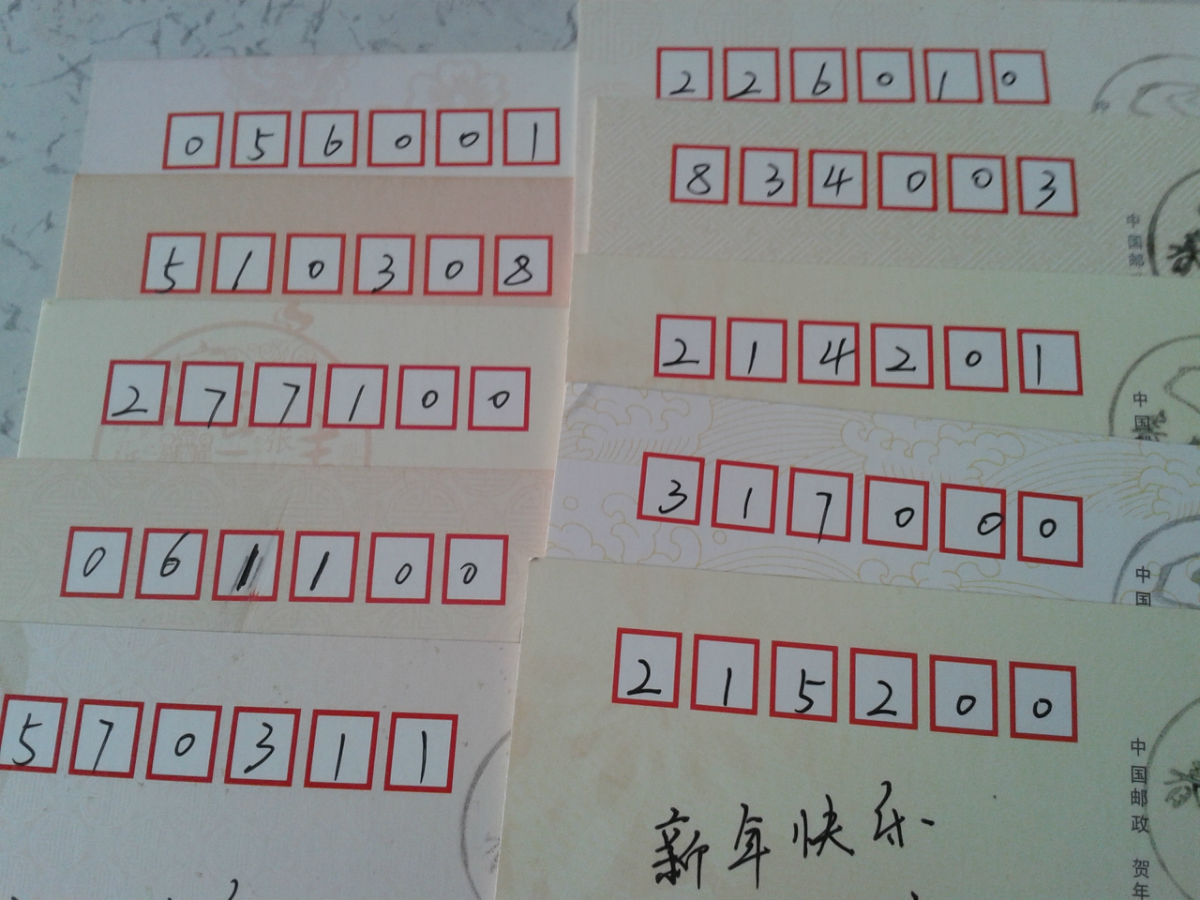 056001
510308
277100
061100
570311
226010
834003
214201
317000
215200
新年快乐
中国邮
中国
中国
中国邮政 贺年